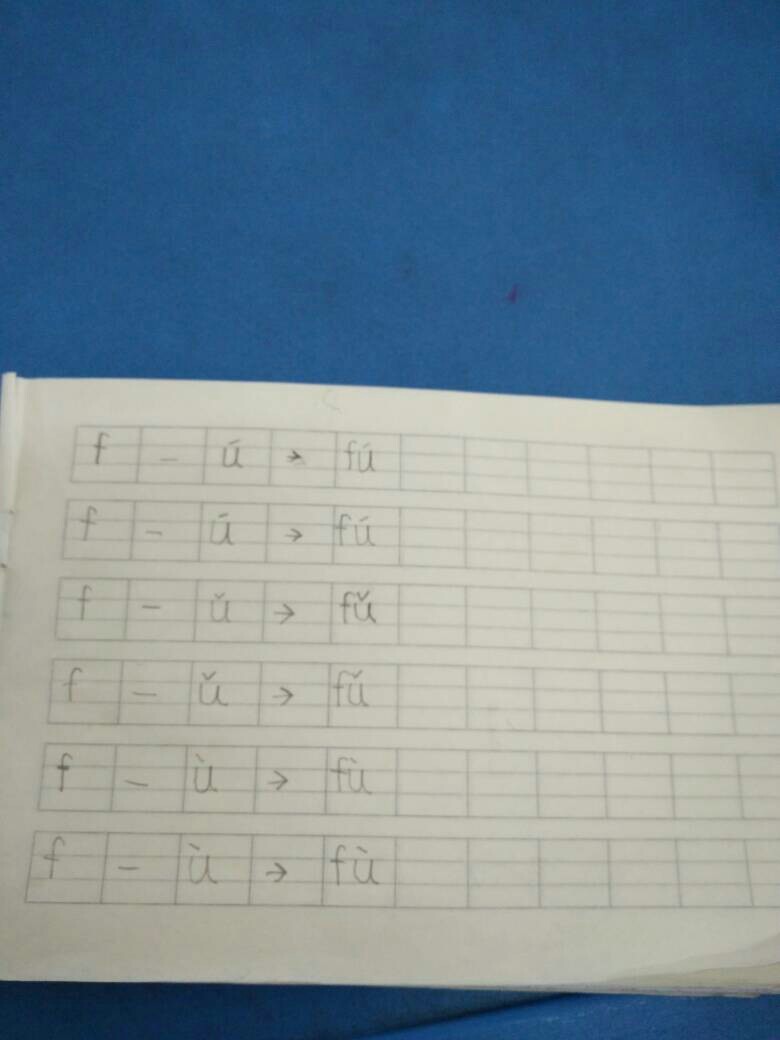 f – ú → fú
f – ú → fú
f – ǔ → fǔ
f – ǔ → fǔ
f – ù → fù
f – ù → fù